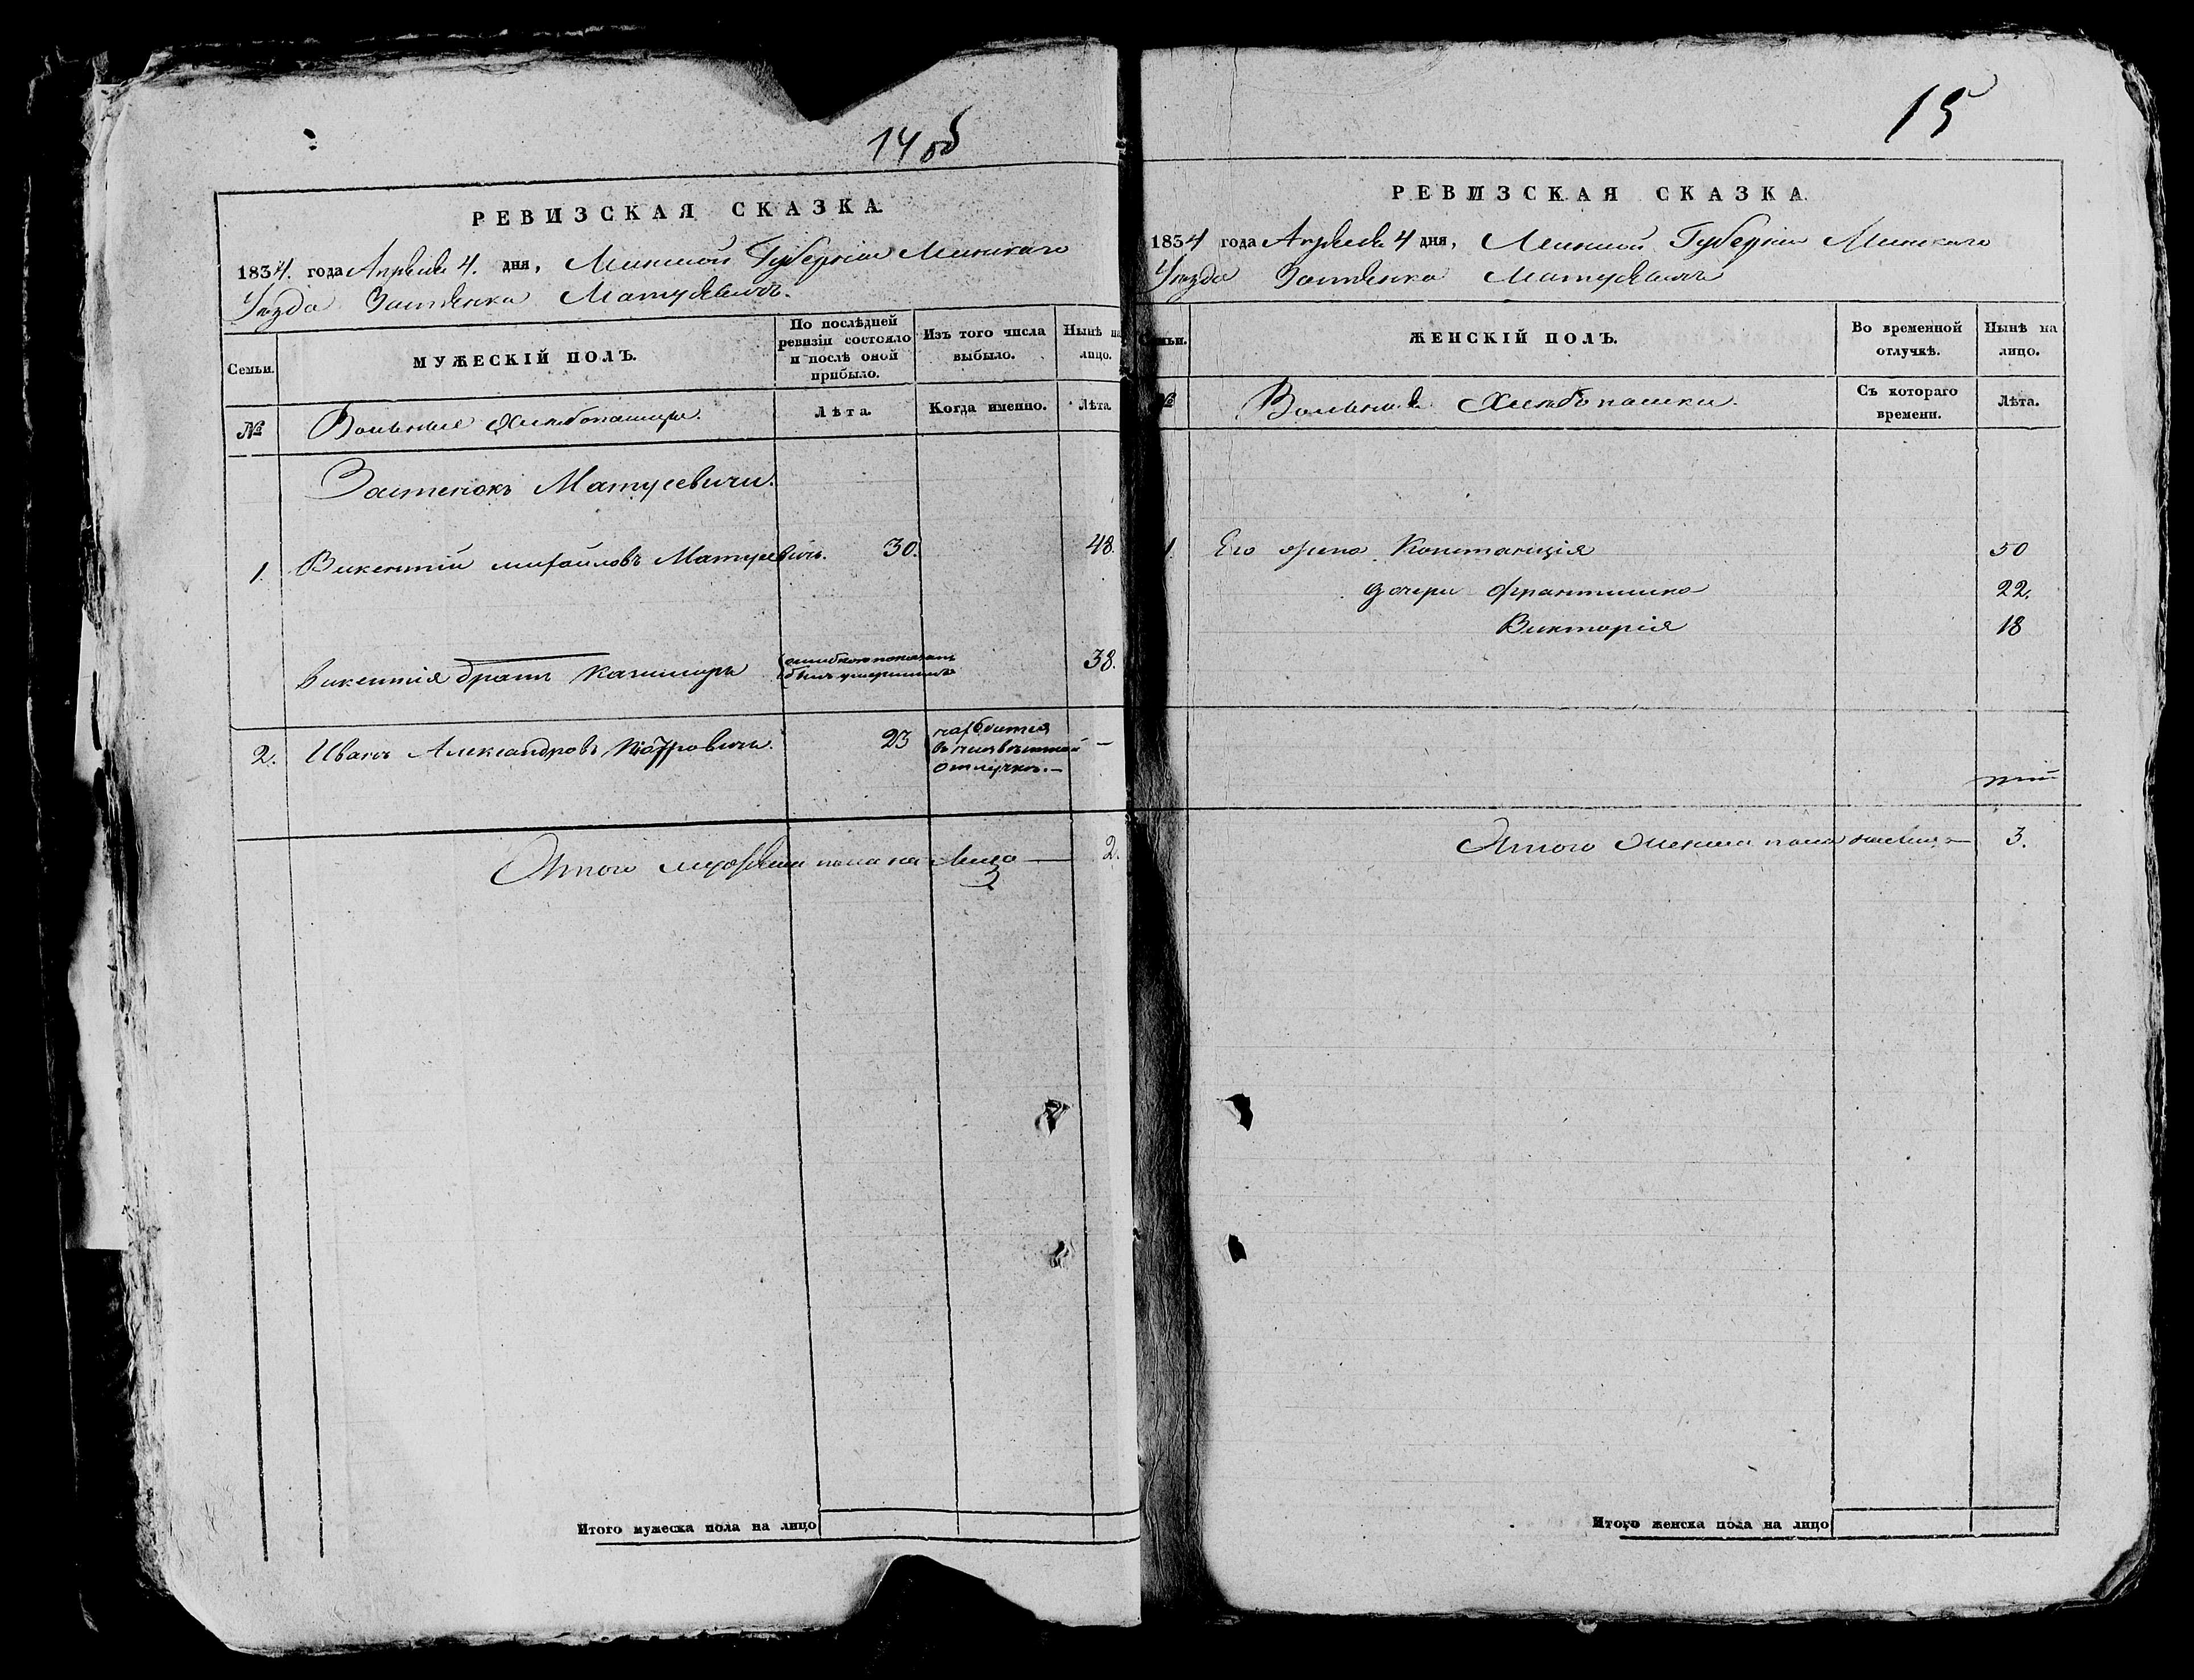 14 об
РЕВИЗСКАЯ СКАЗКА.
1834. года Апреля 4. дня, Минской Губерніи Минскаго
Уезда Застенка Матусевичъ.
Семьи.
МУЖЕСКІЙ ПОЛЪ.
По послѣдней ревизіи состояло и послѣ оной прибыло.
Изъ того числа выбыло.
Нынѣ на лицо.
№
Вольные Хлебопашцы.
Лѣта.
Когда именно.
Лѣта
Застенокъ Матусевичи.
1. Викентій Михайловъ Матусевичъ. 30. 48.
Викентія братъ Казимиръ ошибкою показанъ былъ умершимъ 38.
2. Иванъ Александровъ 23 находится в неизвестной отлучке. —
Итого мужеска пола на лицо — 2.
Итого мужеска пола на лицо
15
РЕВИЗСКАЯ СКАЗКА.
1834 года Апреля 4 дня, Минской Губерніи Минскаго
Уезда Застенка Матусевичъ
Семьи.
ЖЕНСКІЙ ПОЛЪ.
Во временной отлучкѣ.
Нынѣ на лицо.
№
Вольные Хлебопашцы.
Съ котораго времени.
Лѣта.
1. Его жена Констанція 50
дочери Франтишка 22.
Викторія 18
Итого женска пола на лицо — 3.
Итого женска пола на лицо